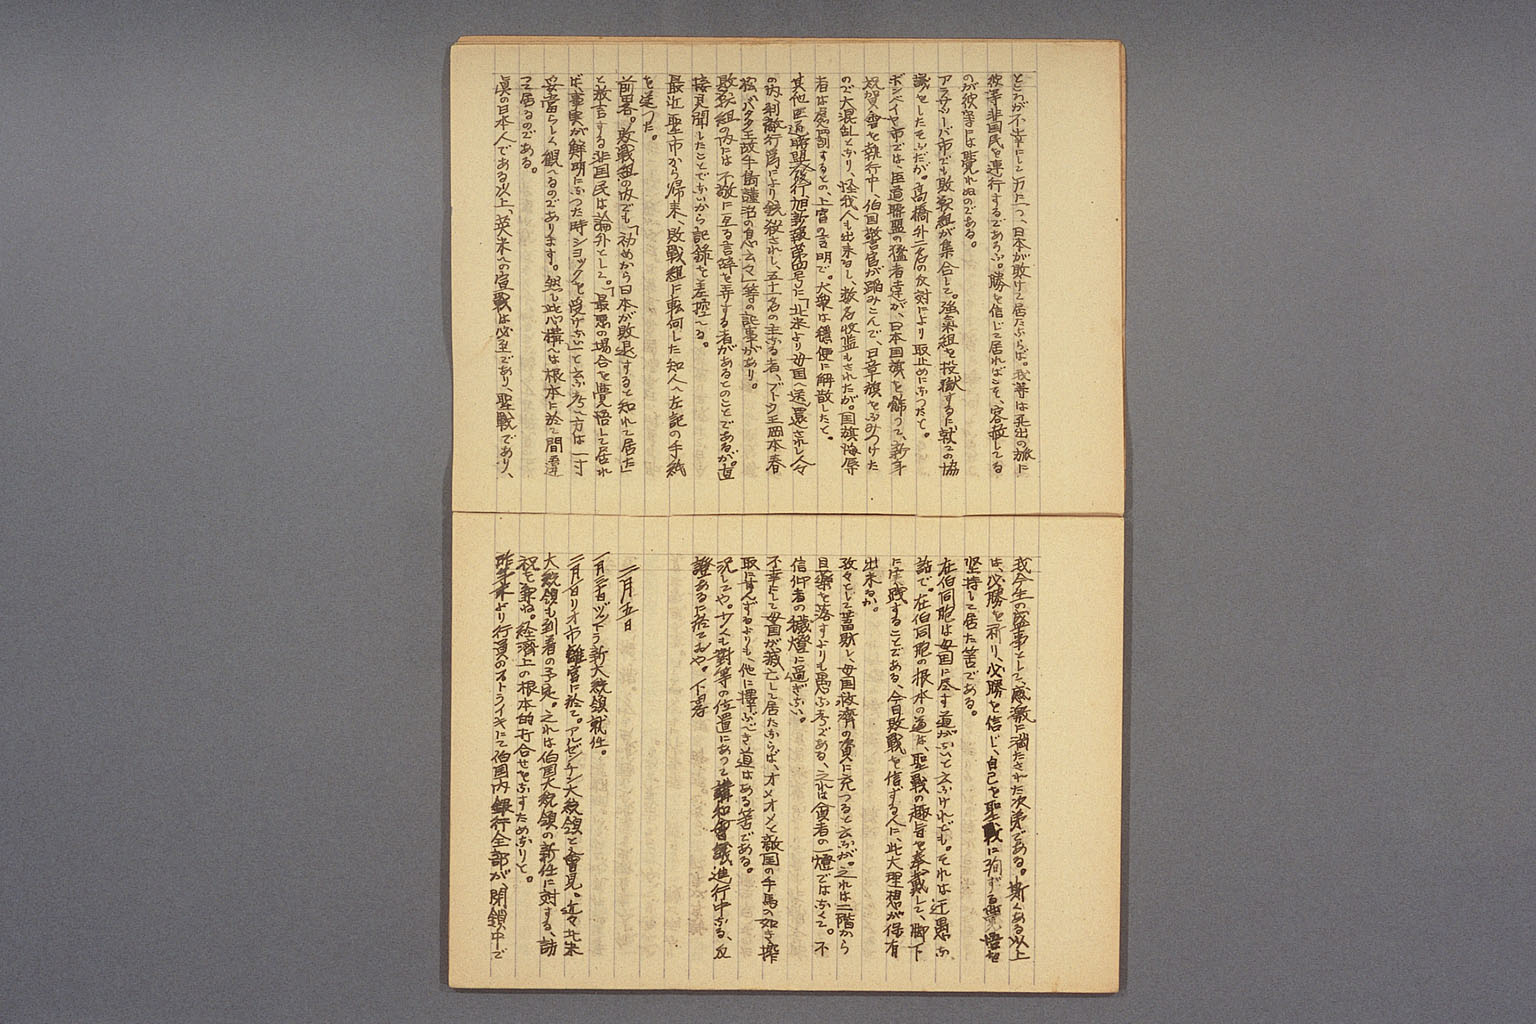 ところが不幸にして万だ一つ、日本が敗けて居たならば。我等は死出の旅に
彼等非国民を連行するであらふ。勝を信じて居ればこそ、容赦してる
のが彼等には覚れぬのである。
アラサツーバ市でも敗戦組が集合して。強氣組を投獄するに就ての協
議をしたそふだが。高橋外二名の反対により取止めになつたと。
ポンペイヤ市では、臣道聯盟の猛者達が、日本国旗を飾つて、新年
祝賀會を執行中、伯国警官が踏みこんで、日章旗をふみつけた
ので大混乱となり、怪我人も出来るし、数名收監もされたが。国旗侮辱
者は處罰するとの、上官の言明で。大衆は穏便に解散したと。
其他臣道聯盟発行旭新報第四号に「北米より母国へ送還されし人々
の内、利敵行為により銃殺されし、五十一名の主なる者、ブドウ王岡本春
松、バタタ王故牛島謹治の息云々」等の記事があり。
敗戦組の内には不敬に亙る言辞を弄する者があるとのことであるが。直
接見聞したことでないから記録を差控へる。
最近聖市から帰来、敗戦組に転向した知人へ左記の手紙
を送つた。
前畧。敗戦組の内でも「初めから日本が敗退すると知れて居た」
と放言する非国民は論外として。「最悪の場合を覚悟して居れ
ば、事実が鮮明になつた時ショックを受けない」と云ふ考へ方は一寸
妥當らしく観へるのであります。然し此心構へは根本に於て間違
つて居るのである。
眞の日本人である以上、英米への宣戦は必至であり、聖戦であり、
我今生の盛事として、感激に満たされた次第である。斯くある以上
は、必勝を祈り、必勝を信じ、自己を聖戦に殉ずる覚悟を
堅持して居た筈である。
在伯同胞は母国に尽す道がないと云ふけれども。それは迂愚な
話で。在伯同胞の根本の道は、聖戦の趣旨を奉戴して、脚下
に実践することである、今日敗戦を信ずる人に、此大理想が保有
出来るか。
孜々として蓄財し、母国救濟の資に充つると云ふが。之れは二階から
目薬を落すよりも愚な考である、之れは貧者の一燈ではなくて。不
信仰者の穢燈に過ぎない。
不幸にして母国が滅亡して居たならば、オメオメと敵国の牛馬の如き搾
取に甘んずるよりも、他に擇ぶべき道はある筈である。
況してや。少くも對等の位置にあつて講和會議進行中なる、反
證あるに於てをや。下畧
二月五日
一月三十日ヅットラ新大統領就任。
二月一日リオ市離宮に於て。アルゼンチン大統領と會見。近々北米
大統領も到着の予定。之れは伯国大統領の新任に対する、訪
祝を兼ね。経済上の根本的打合せをなすためなりと。
昨年末より行員のストライキにて伯国内銀行全部が、閉鎖中で